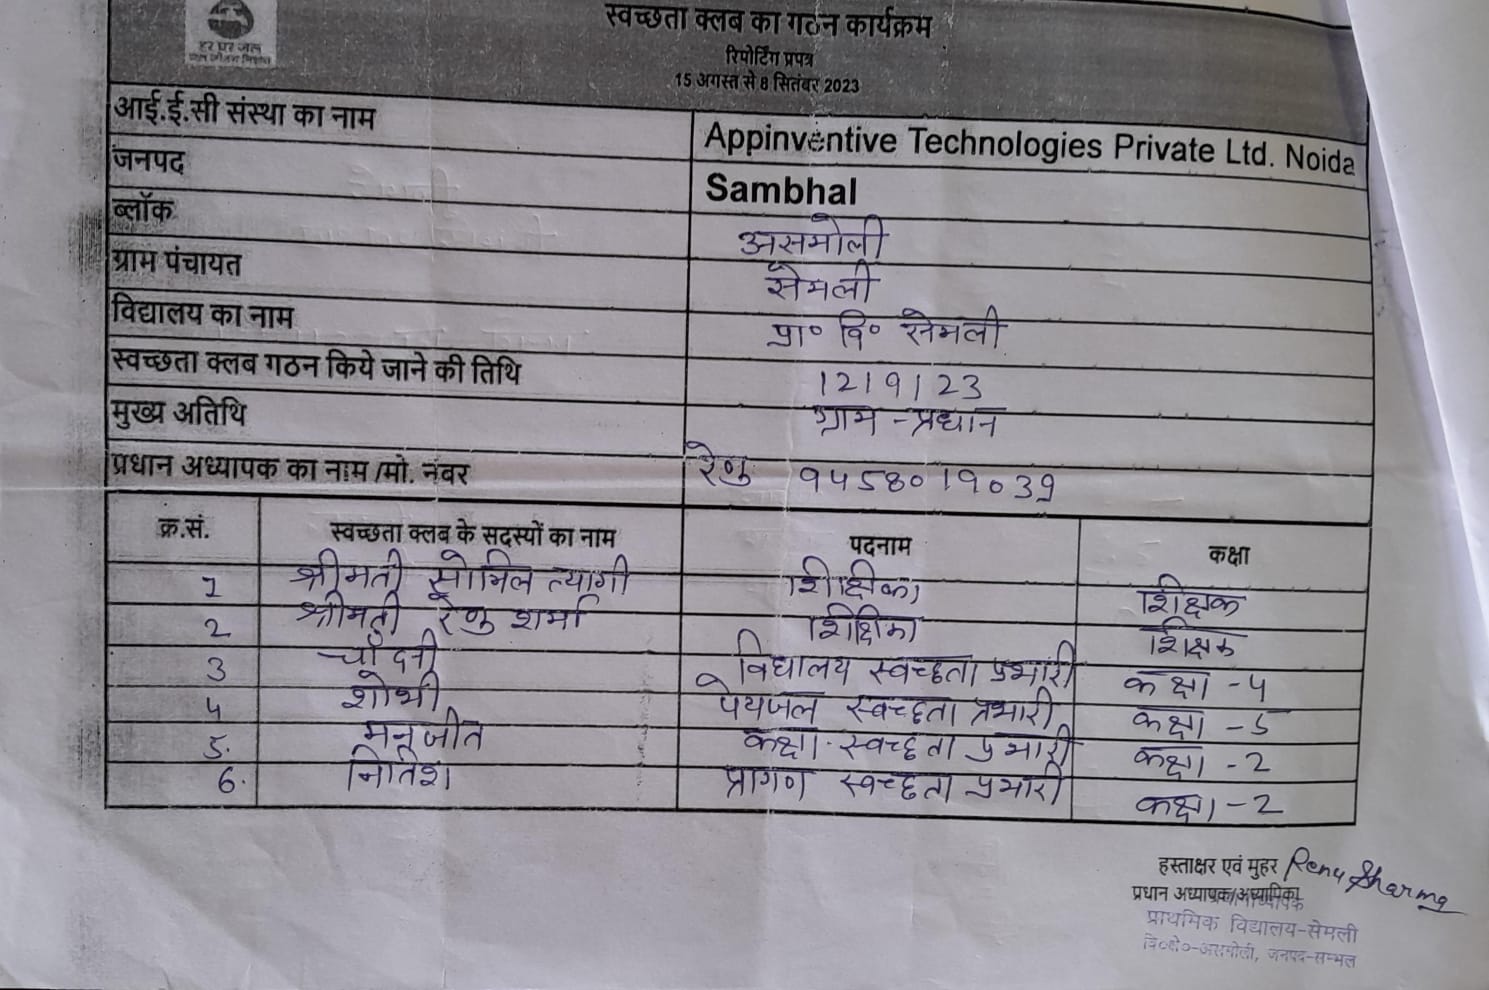 हर घर जल
स्वच्छता क्लब का गठन कार्यक्रम
रिपोर्टिंग प्रपत्र
15 अगस्त से 8 सितंबर 2023
आई.ई.सी संस्था का नाम Appinventive Technologies Private Ltd. Noida
जनपद Sambhal
ब्लॉक असमोली
ग्राम पंचायत सेमली
विद्यालय का नाम प्रा० वि० सेमली
स्वच्छता क्लब गठन किये जाने की तिथि 12|9|23
मुख्य अतिथि ग्राम-प्रधान
प्रधान अध्यापक का नाम /मो. नंबर रेणु 9458019039
क्र.सं. स्वच्छता क्लब के सदस्यों का नाम पदनाम कक्षा
1 श्रीमती त्यागी शिक्षिका शिक्षक
2 श्रीमती रेणु शर्मा शिक्षिका शिक्षक
3 चाँदनी विद्यालय स्वच्छता प्रभारी कक्षा -4
4 शोभी पेयजल स्वच्छता प्रभारी कक्षा -5
5. मनुजीत कक्षा स्वच्छता प्रभारी कक्षा -2
6. नितिश प्रांगण स्वच्छता प्रभारी कक्षा -2
हस्ताक्षर एवं मुहर Renu Sharma
प्रधान अध्यापक/अध्यापिका
प्राथमिक विद्यालय-सेमली
वि०क्षे०-असमोली, जनपद-सम्भल